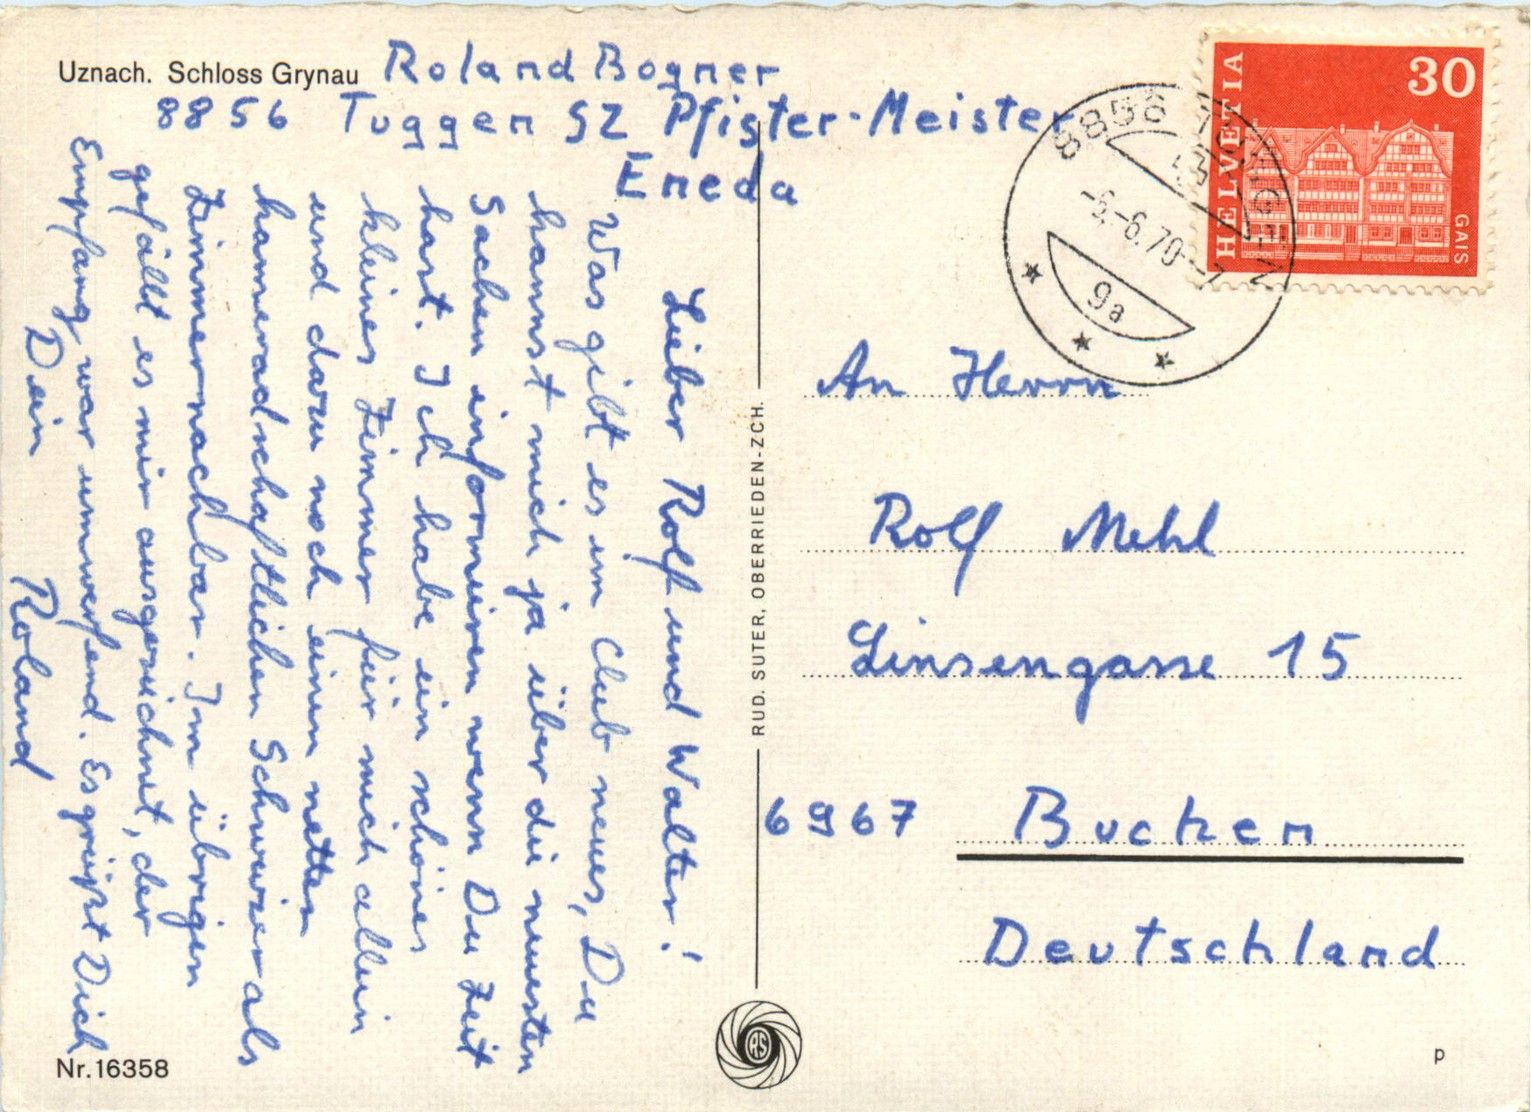 Uznach. Schloss Grynau
Roland Bogner
8856 Tuggen SZ Pfister-Meister
Eneda
Lieber Rolf und Walter!
Was gibt es im Club neues, Du
kannst mich ja über die neuesten
Sachen informieren wenn Du Zeit
hast. Ich habe ein schönes
kleines Zimmer für mich allein
und dazu noch einen netten
kameradschaftlichen Schweizer als
Zimmernachbar. Im übrigen
gefällt es mir ausgezeichnet, der
Empfang war umwerfend. Es grüßt Dich
Dein Roland
Nr. 16358
RUD. SUTER, OBERRIEDEN-ZCH.
RS
HELVETIA
30
GAIS
8856 TUGGEN
-6.-6.70--7
9a
An Herrn
Rolf Mehl
Linsengasse 15
6967 Buchen
Deutschland
p